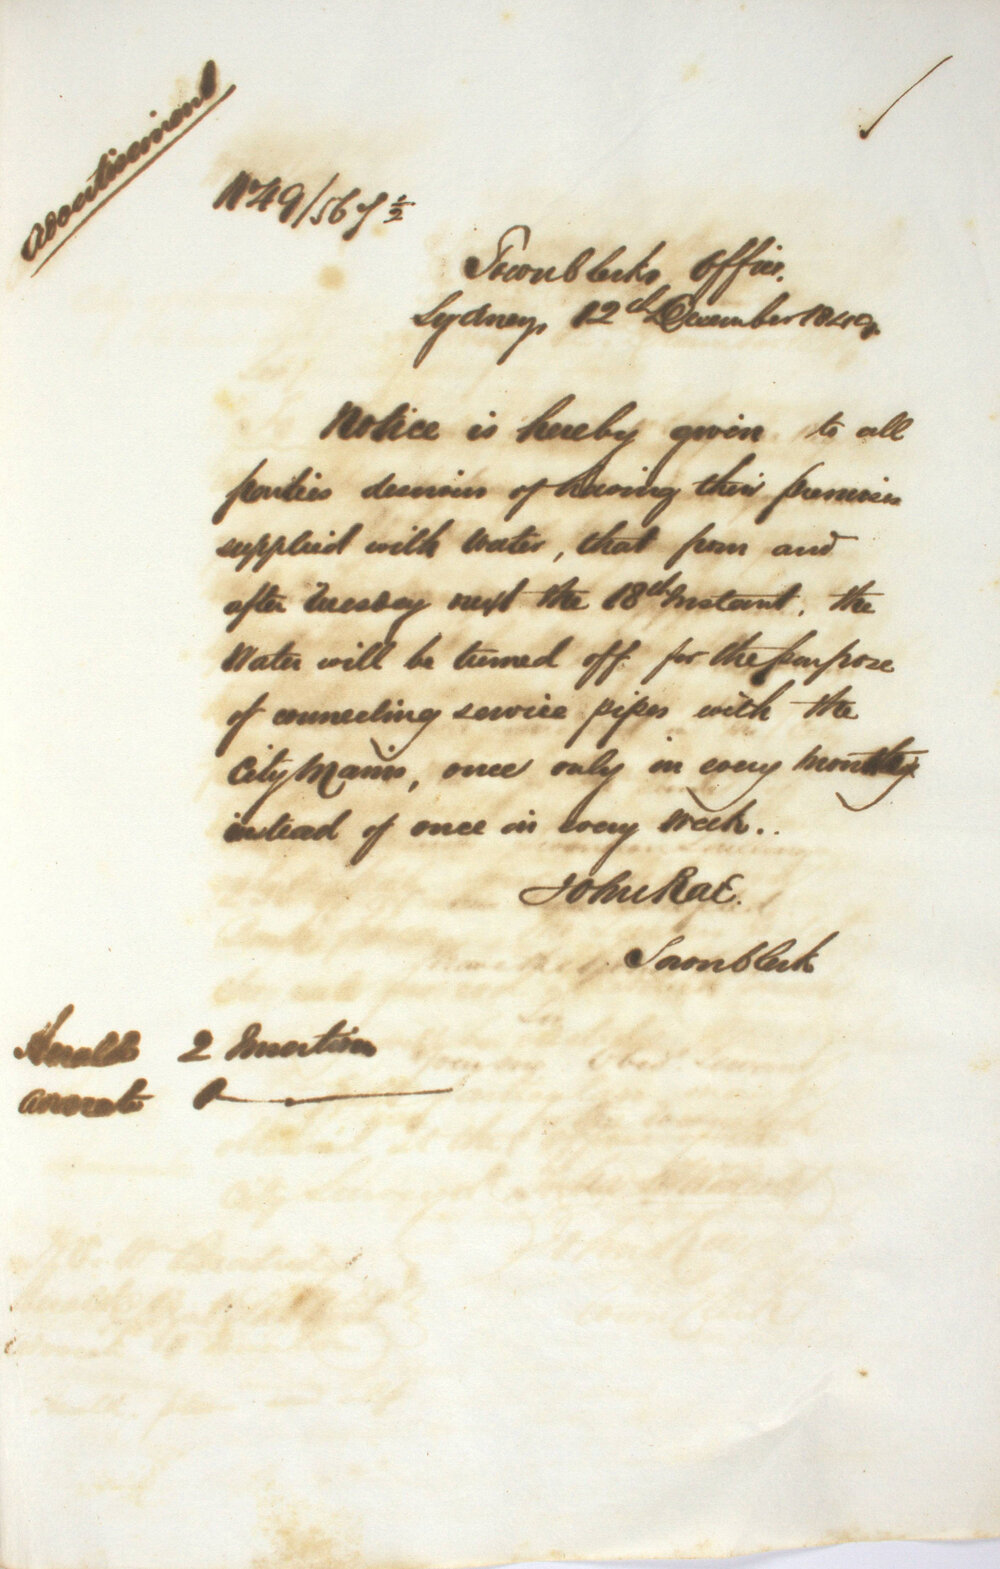 Advertisement
No 49/567½
Town Clerks Office.
Sydney, 12th December 1849.
Notice is hereby given to all
parties desirous of having their premises
supplied with Water, that from and
after Tuesday next the 18th Instant, the
Water will be turned off for the purpose
of connecting service pipes with the
City Mains, once only in every month
instead of once in every Week..
John Rae.
Town Clerk
Herald 2 Insertions